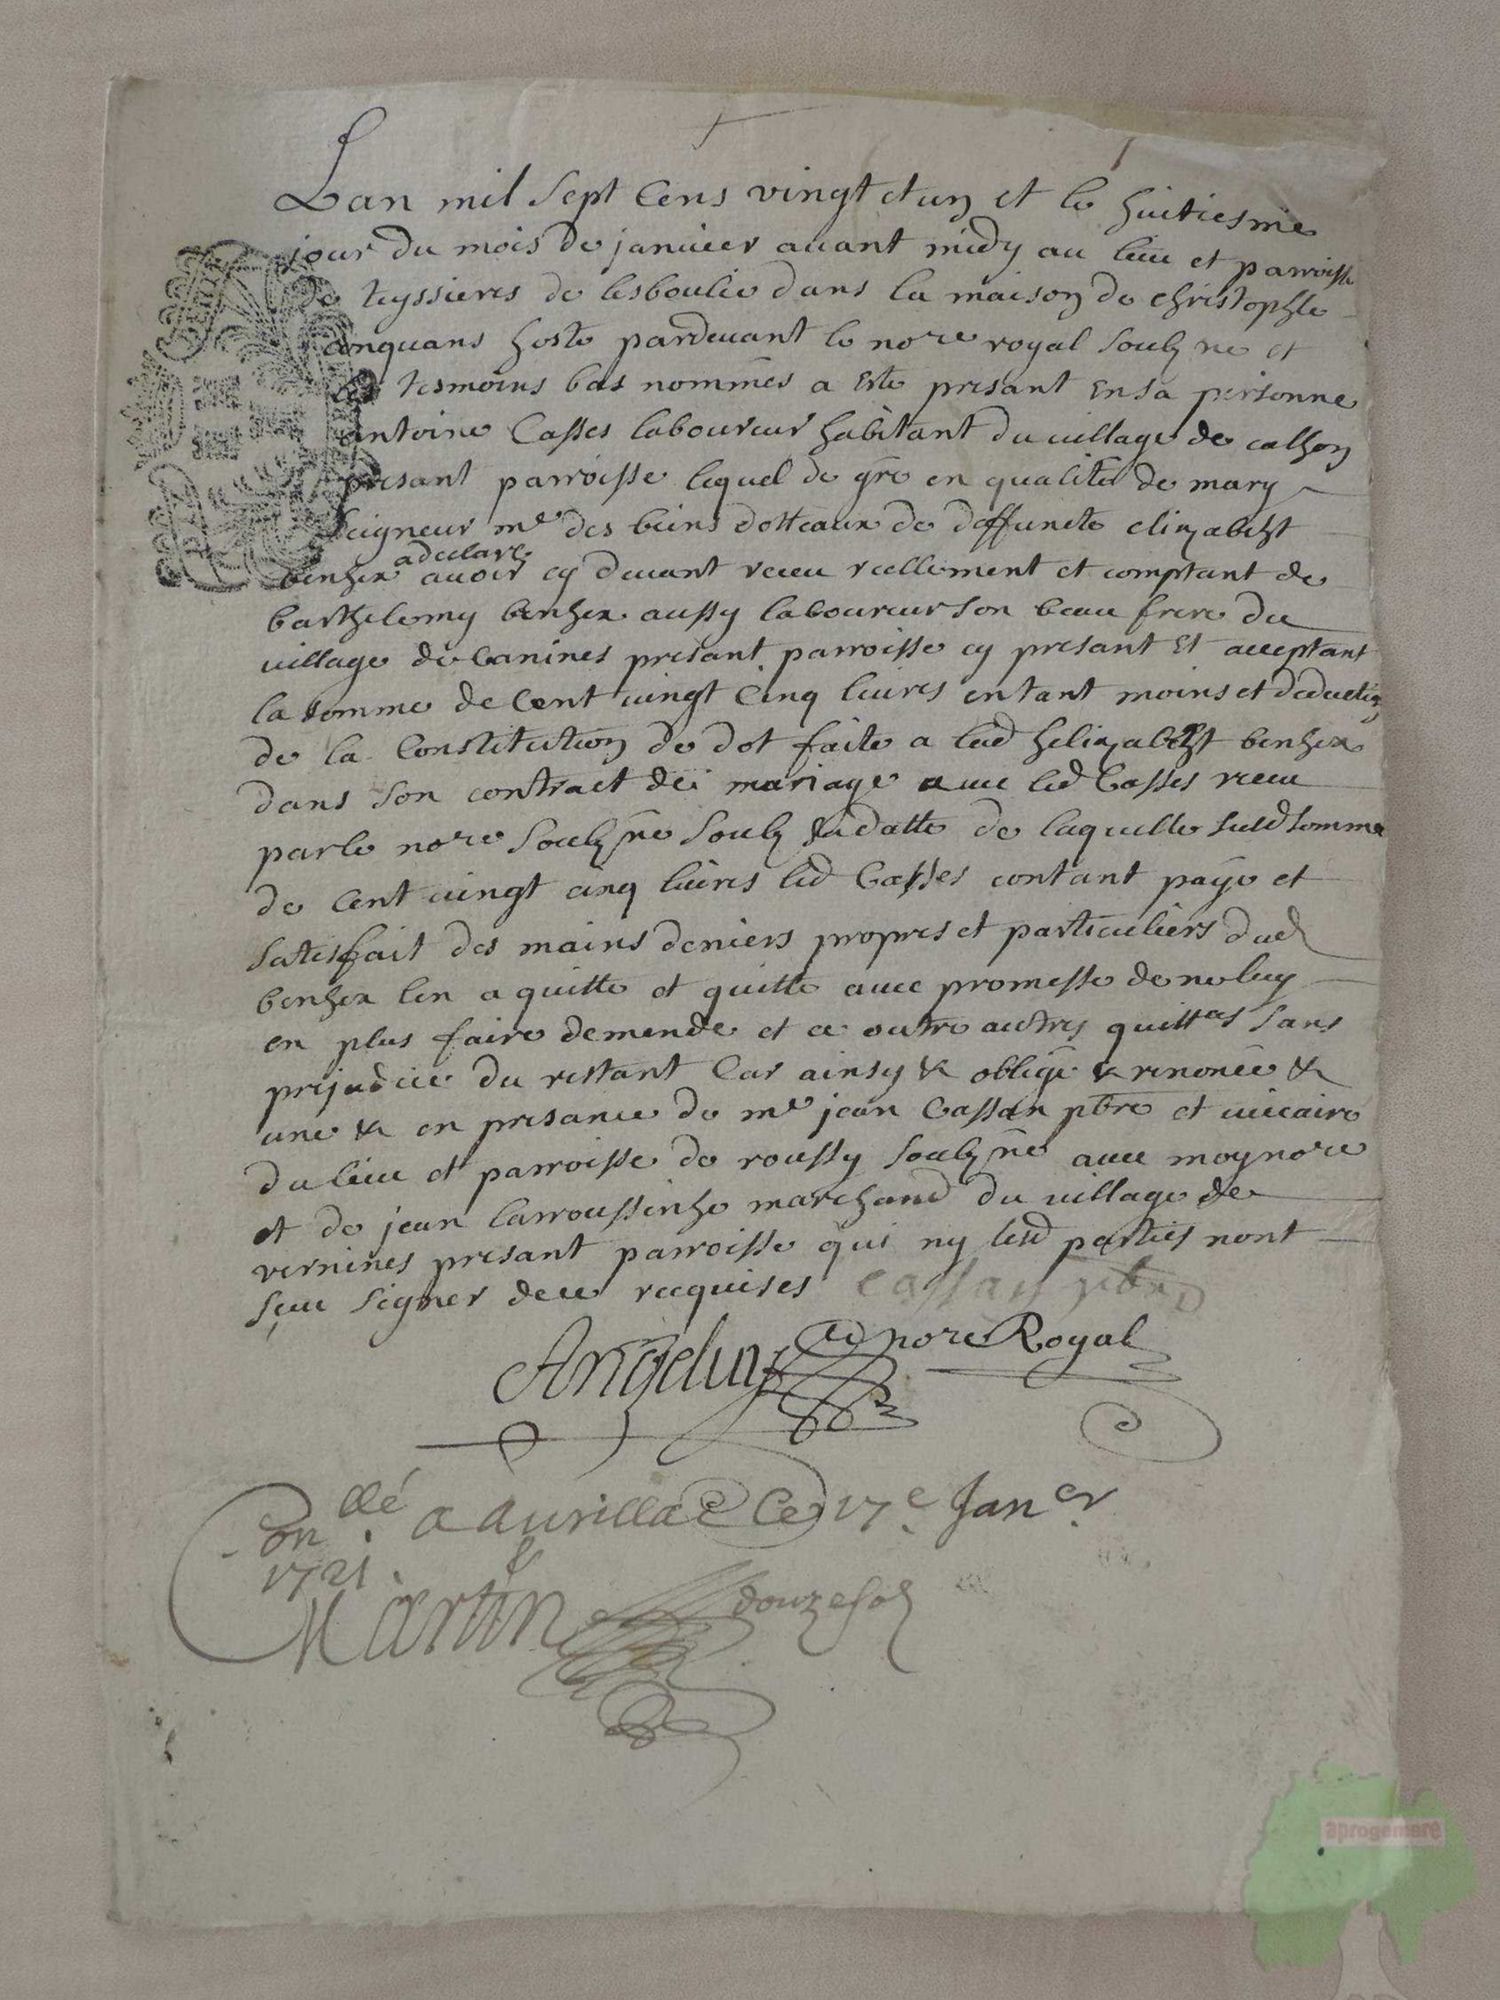 Lan mil sept cens vingt et un et le huitiesme
jour du mois de janvier avant midy au lieu et parroisse
de teyssieres de lesboulie dans la maison de christophle
hoste pardevant le nore royal soubzne et
les tesmoins bas nommés a esté presant en sa personne
antoine Casses laboureur habitant du village de calhon
presant parroisse lequel de gré en qualité de mary
seigneur me des biens dotteaux de deffuncte elizabeht
a declare
benhex avoir cy devant receu reellement et comptant de
barthelemy benhex aussy laboureur son beau frere du
village de canines presant parroisse cy presant Et acceptant
la somme de cent vingt cinq livres en tant moins et deduction
de la Constitution de dot faite a lad helizabeht benhex
dans son contract de mariage avec led Casses receu
par le nore soubzne soubz sa datte de laquelle susd somme
de cent vingt cinq livres led Casses contant payé et
satisfait des mains deniers propres et particuliers dud
benhex len a quitte et quitte avec promesse de ne luy
en plus faire demende et ce outre autres quittes sans
prejudice du restant Car ainsy & obligé & renoncé &
une & en presance de me jean Cassan pbre et vicaire
du lieu et parroisse de roussy soubzne avec moy nore
et de jean Larroussinhe marchand du village de
vernines presant parroisse qui ny lesd parties nont
sceu signer dece recquises Cassan pbre
Angeluy nore Royal
Conllé a aurillac Ce 17e Janer
1721.
Martin douze solz
aprogemere